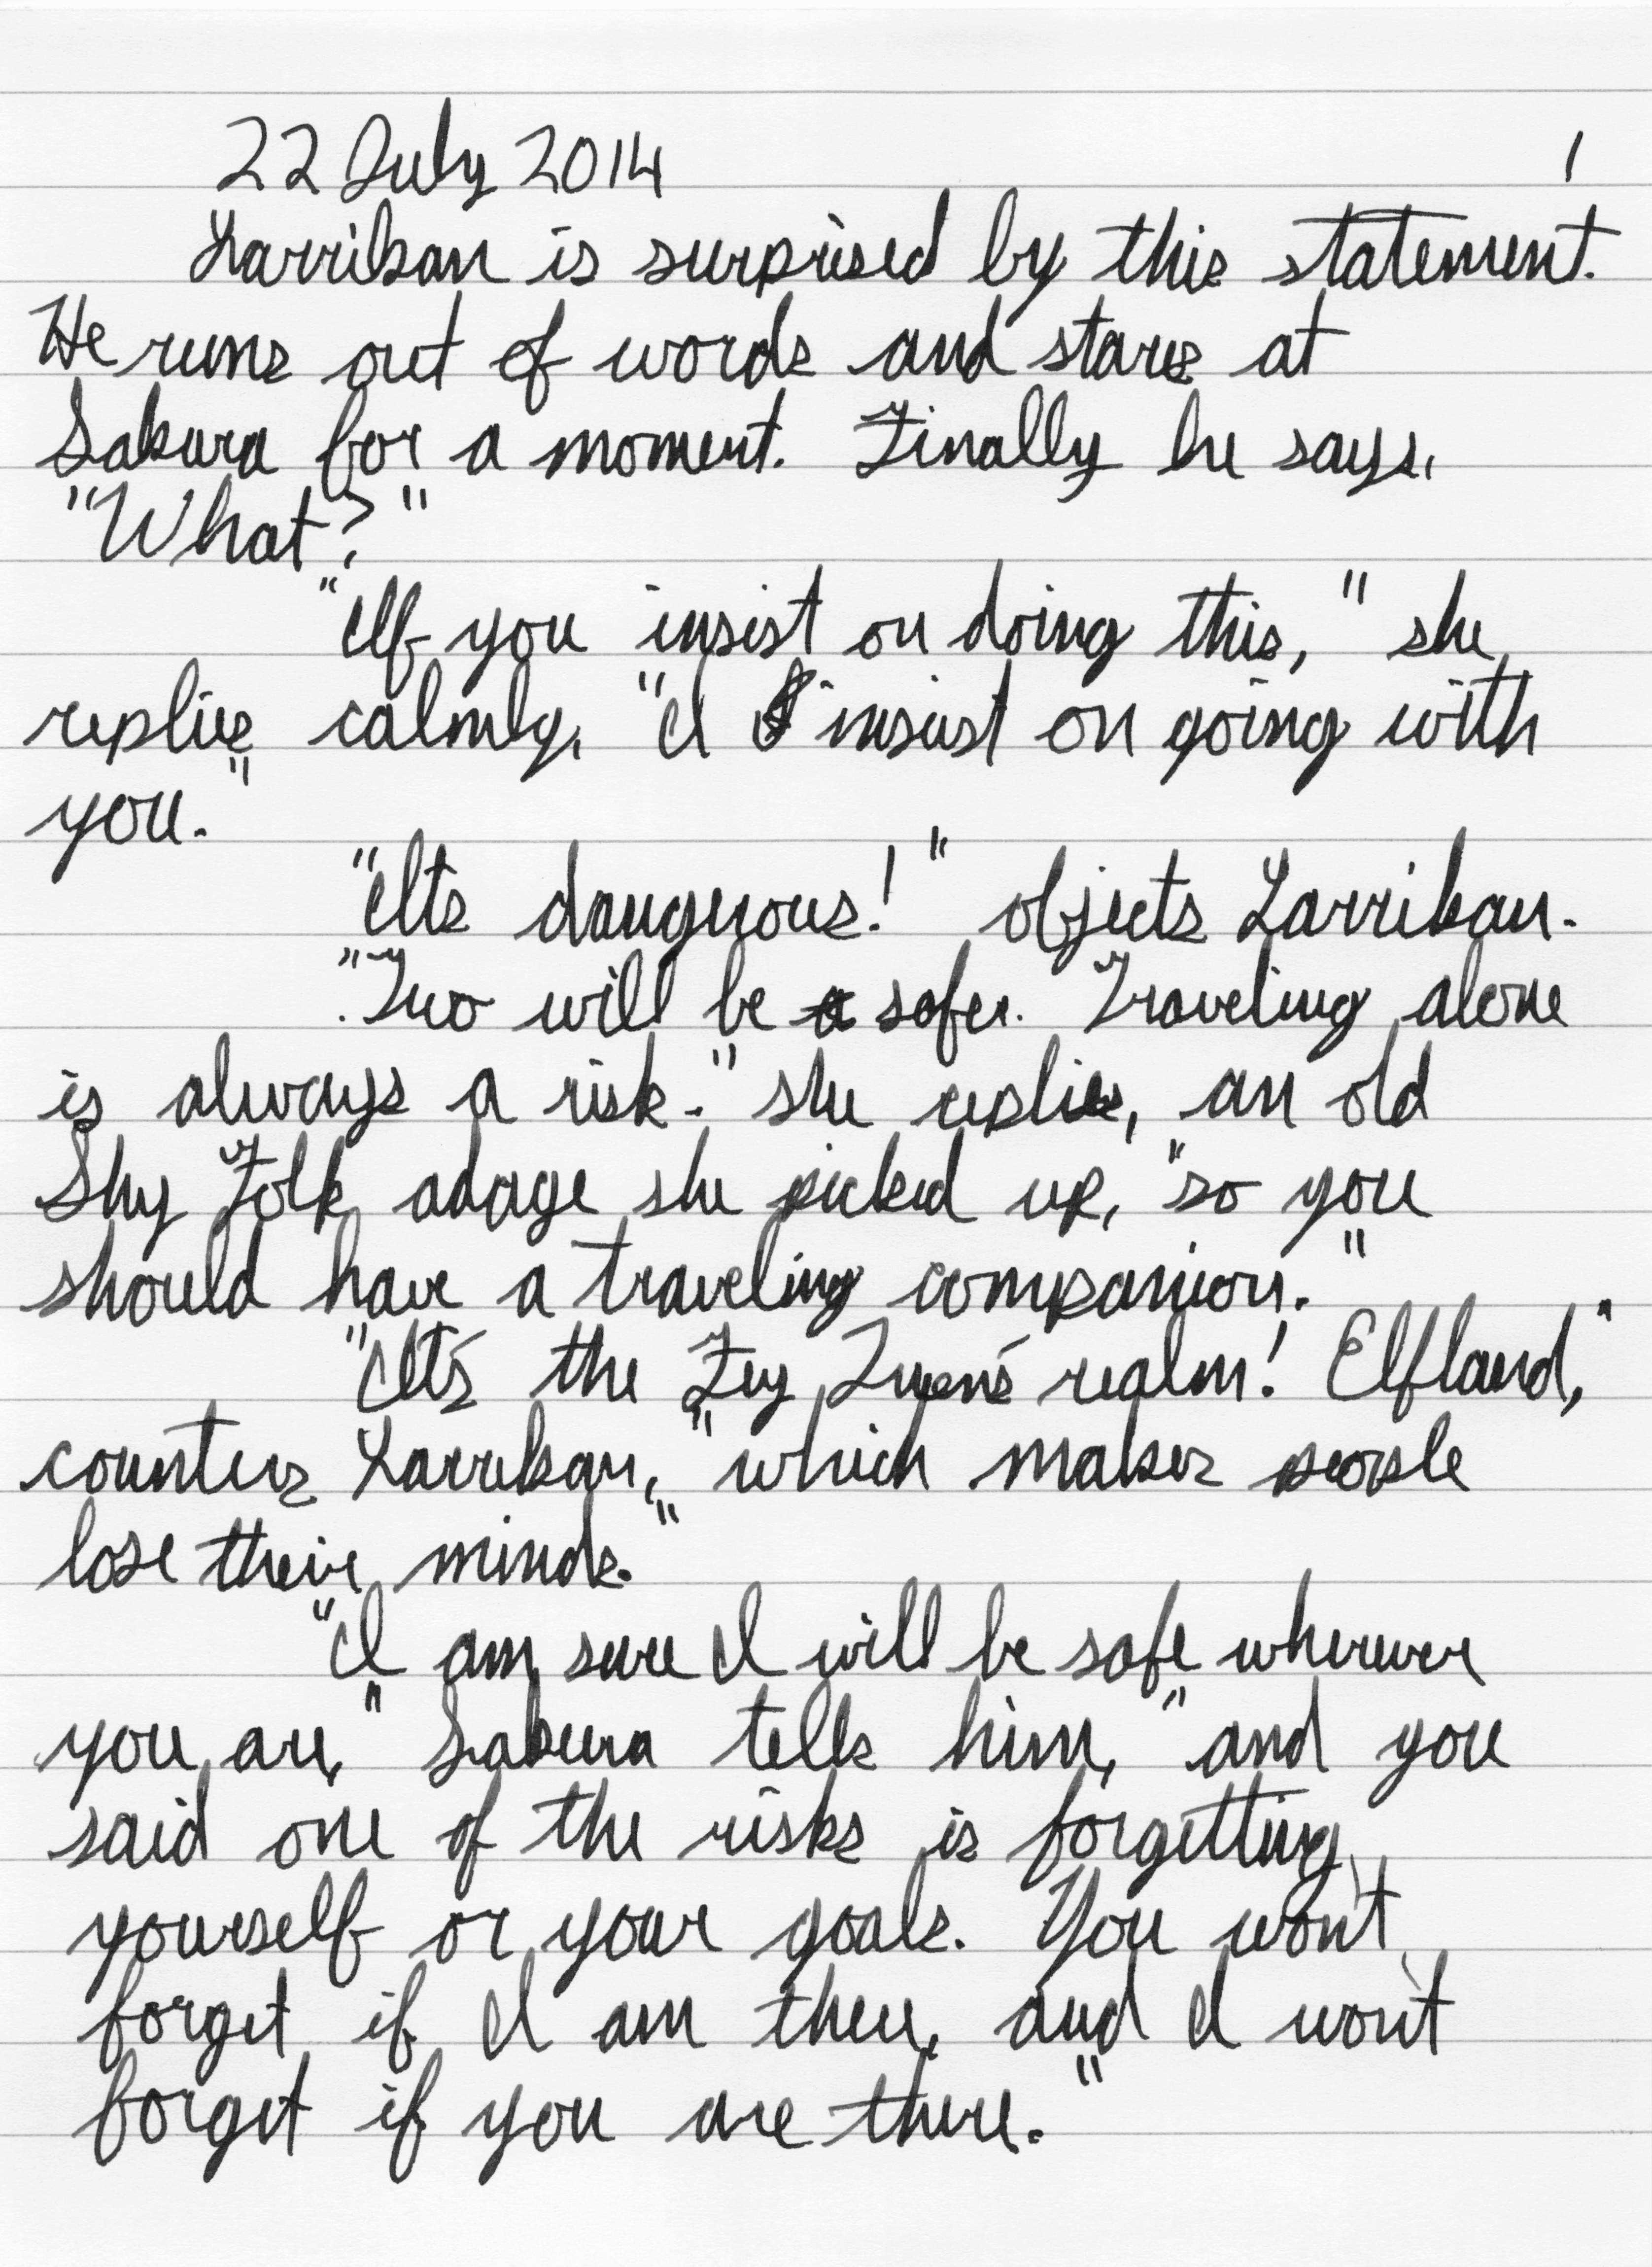 22 July 2014 1
Larrikan is surprised by this statement.
He runs out of words and stares at
Sakura for a moment. Finally he says,
"What?"
"If you insist on doing this," she
replies calmly, "I insist on going with
you."
"Its dangerous!" objects Larrikan.
"Two will be safer. Traveling alone
is always a risk." she replies, an old
Shy Folk adage she picked up, "so you
should have a traveling companion."
"It's the Fey Queen's realm! Elfland,"
counters Larrikan, "which makes people
lose their minds."
"I am sure I will be safe wherever
you are," Sakura tells him, "and you
said one of the risks is forgetting
yourself or your goals. You won't
forget if I am there, and I won't
forget if you are there."